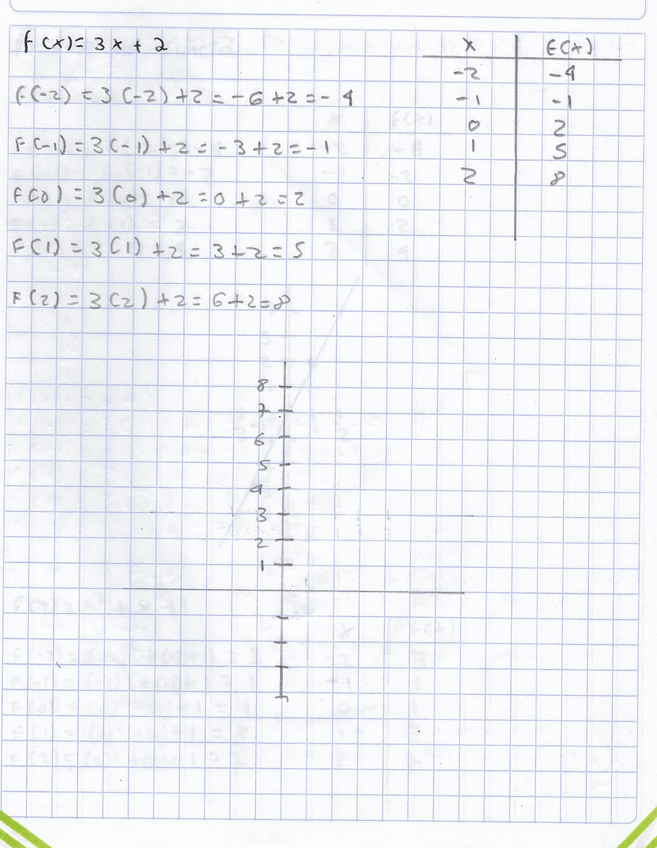 f(x)= 3x + 2
x F(x)
-2 -4
F(-2) = 3(-2)+2 = -6+2 = -4
-1 -1
0 2
F(-1) = 3(-1)+2 = -3+2 = -1
1 5
2 8
F(0) = 3(0)+2 = 0+2 = 2
F(1) = 3(1)+2 = 3+2 = 5
F(2) = 3(2)+2 = 6+2=8
8
7
6
5
4
3
2
1